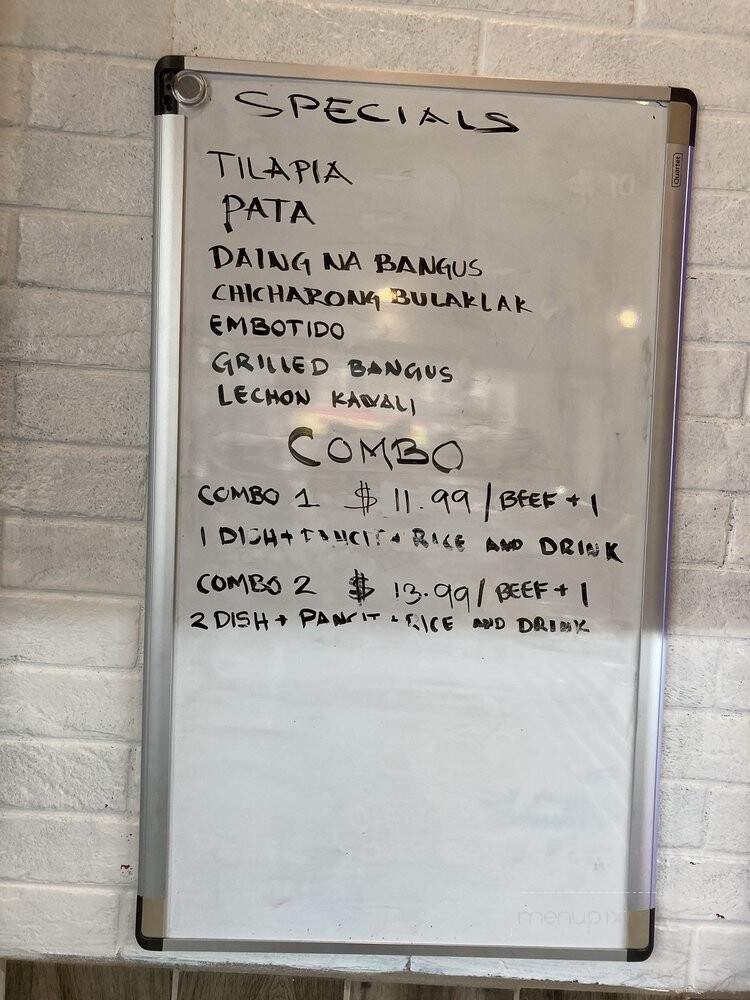 SPECIALS
Quartet
TILAPIA
PATA
DAING NA BANGUS
CHICHARONG BULAKLAK
EMBOTIDO
GRILLED BANGUS
LECHON KAWALI
COMBO
COMBO 1 $ 11.99 / BEEF + 1
1 DISH + PANCIT + RICE AND DRINK
COMBO 2 $ 13.99 / BEEF + 1
2 DISH + PANCIT + RICE AND DRINK
menupix